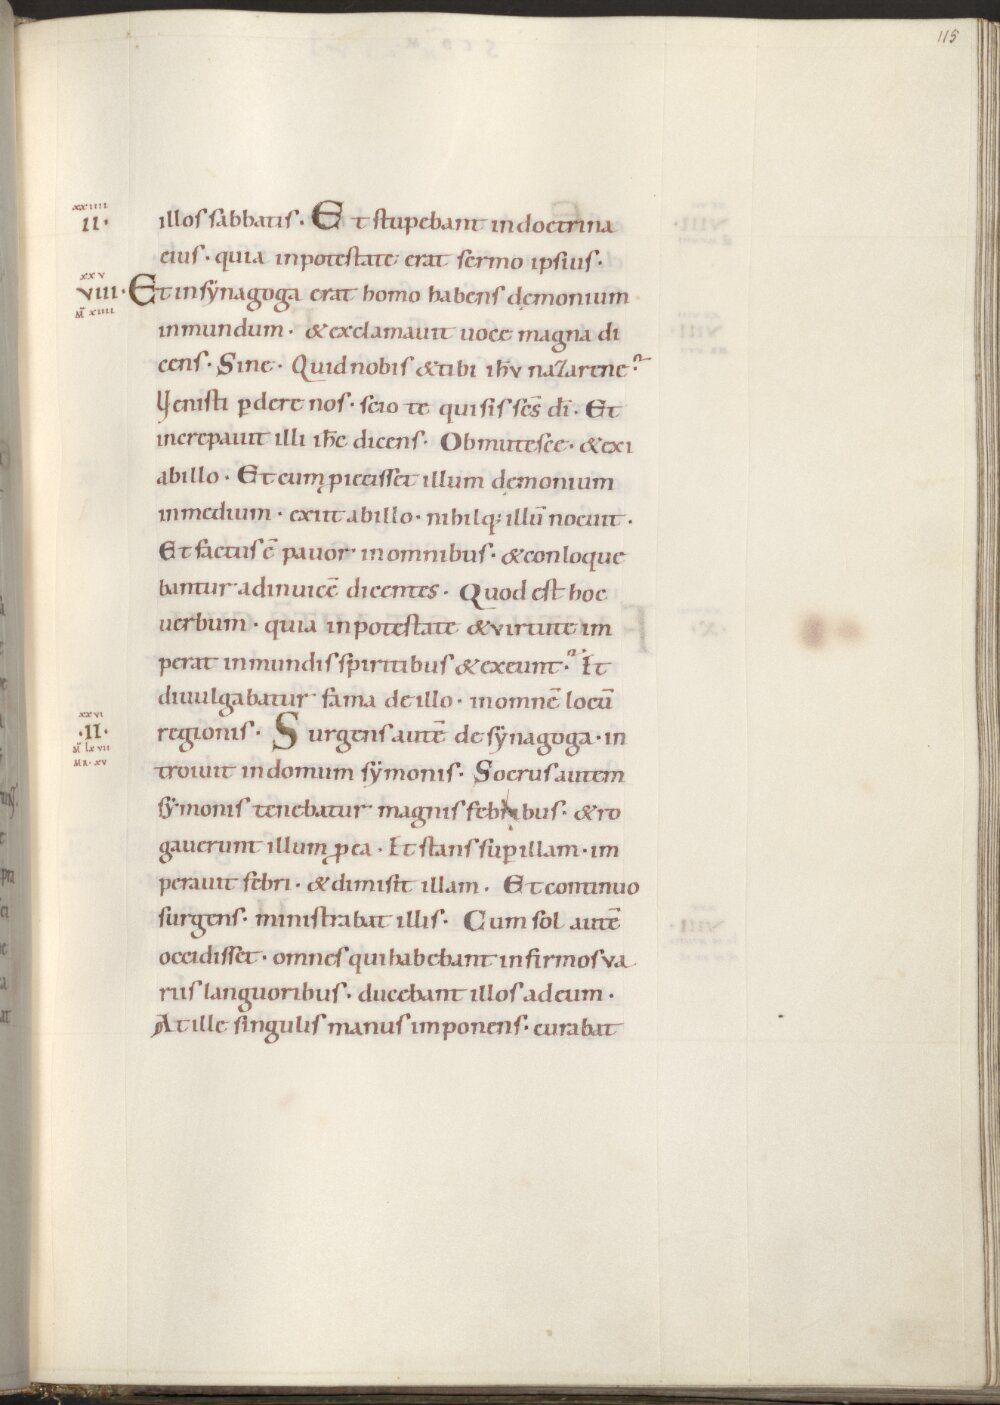 115
xxiiii
II· illos sabbatis· Et stupebant indoctrina
eius· quia inpotestate erat sermo ipsius·
xxv
VIII· Et insynagoga erat homo habens dęmonium
M̄ xiiii
inmundum· & exclamauit uoce magna di
cens· Sine· Quid nobis & tibi ihu nazarene·
Uenisti pdere nos· scio te qui sis scs di· Et
increpauit illi ihc dicens· Obmutesce· & exi
abillo· Et cum piecisset illum dęmonium
inmedium· exiit abillo· nihilq; illū nocuit·
Et factus ē pauor inomnibus· & conloque
bantur adinuicē dicentes· Quod est hoc
uerbum· quia inpotestate & virtute im
perat inmundis spiritibus & exeunt· Et
diuulgabatur fama de illo· inomnē locū
xxvi
·II· regionis· Surgens autē de synagoga· in
M̄ lxvii
MR· xv
troiuit indomum symonis· Socrus autem
symonis tenebatur magnis febribus· & ro
gauerunt illum pea· Et stans sup illam· im
perauit febri· & dimisit illam· Et continuo
surgens· ministrabat illis· Cum sol autē
occidisset· omnes qui habebant infirmos va
riis languoribus· ducebant illos adeum·
At ille singulis manus imponens· curabat